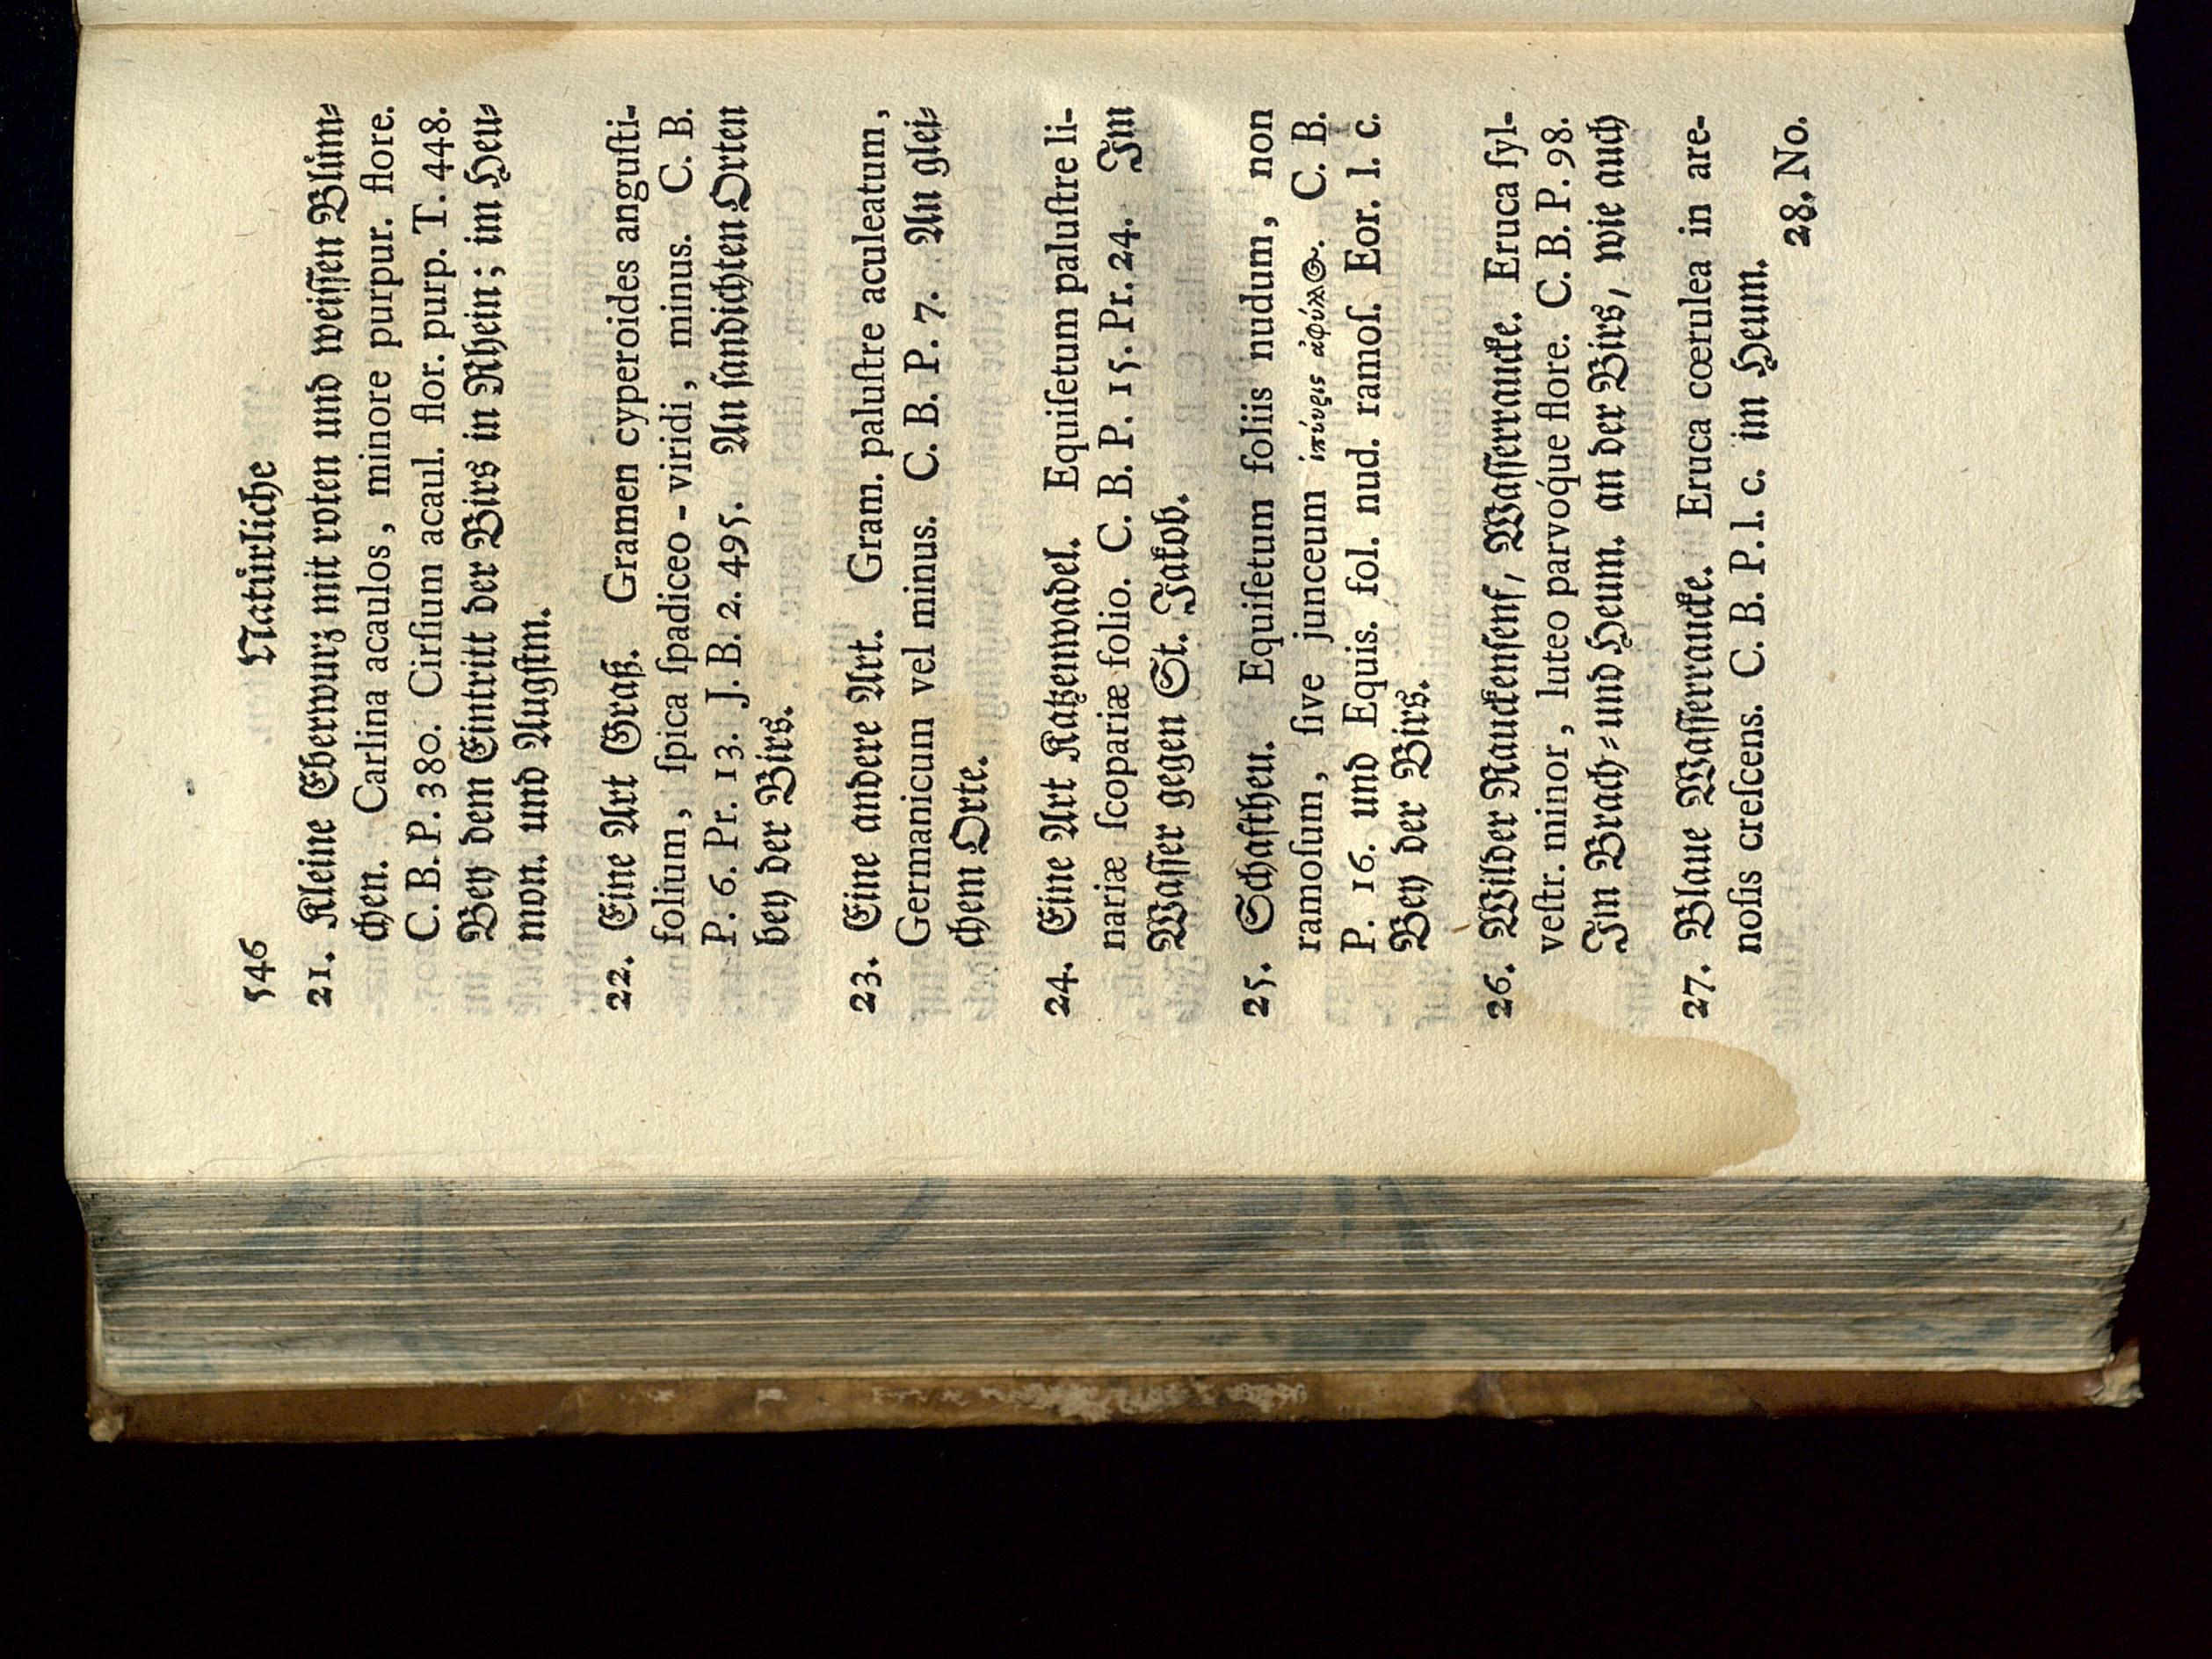 546 Natůrliche
21. Kleine Eberwurz mit roten und weiſſen Blům⸗
chen. Carlina acaulos, minore purpur. flore.
C. B. P. 380. Cirſium acaul. flor. purp. T. 448.
Bey dem Eintritt der Birs in Rhein; im Heu⸗
mon. und Augſtm.
22. Eine Art Graß. Gramen cyperoides anguſti-
folium, ſpica ſpadiceo - viridi, minus. C. B.
P. 6. Pr. 13. J. B. 2. 495. An ſandichten Orten
bey der Birs.
23. Eine andere Art. Gram. paluſtre aculeatum,
Germanicum vel minus. C. B. P. 7. An glei⸗
chem Orte.
24. Eine Art Katzenwadel. Equiſetum paluſtre li-
nariæ ſcopariæ folio. C. B. P. 15. Pr. 24. Im
Waſſer gegen St. Jakob.
25. Schaftheu. Equiſetum foliis nudum, non
ramoſum, ſive junceum C. B.
P. 16. und Equis. fol. nud. ramoſ. Eor. l. c.
Bey der Birs.
26. Wilder Rauckenſenf, Waſſerraucke. Eruca ſyl-
veſtr. minor, luteo parvóque flore. C. B. P. 98.
Im Brach⸗und Heum. an der Birs, wie auch
27. Blaue Waſſerraucke. Eruca cœrulea in are-
noſis creſcens. C. B. P. l. c. im Heum.
28. No.